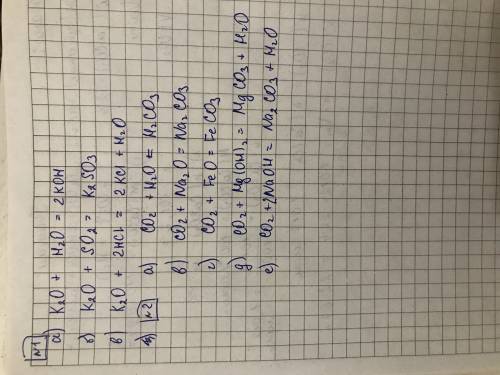 №1
а) K2O + H2O = 2KOH
б) K2O + SO2 = K2SO3
в) K2O + 2HCl = 2KCl + H2O
№2 а) CO2 + H2O = H2CO3
в) CO2 + Na2O = Na2CO3
г) CO2 + FeO = FeCO3
д) CO2 + Mg(OH)2 = MgCO3 + H2O
е) CO2 + 2NaOH = Na2CO3 + H2O